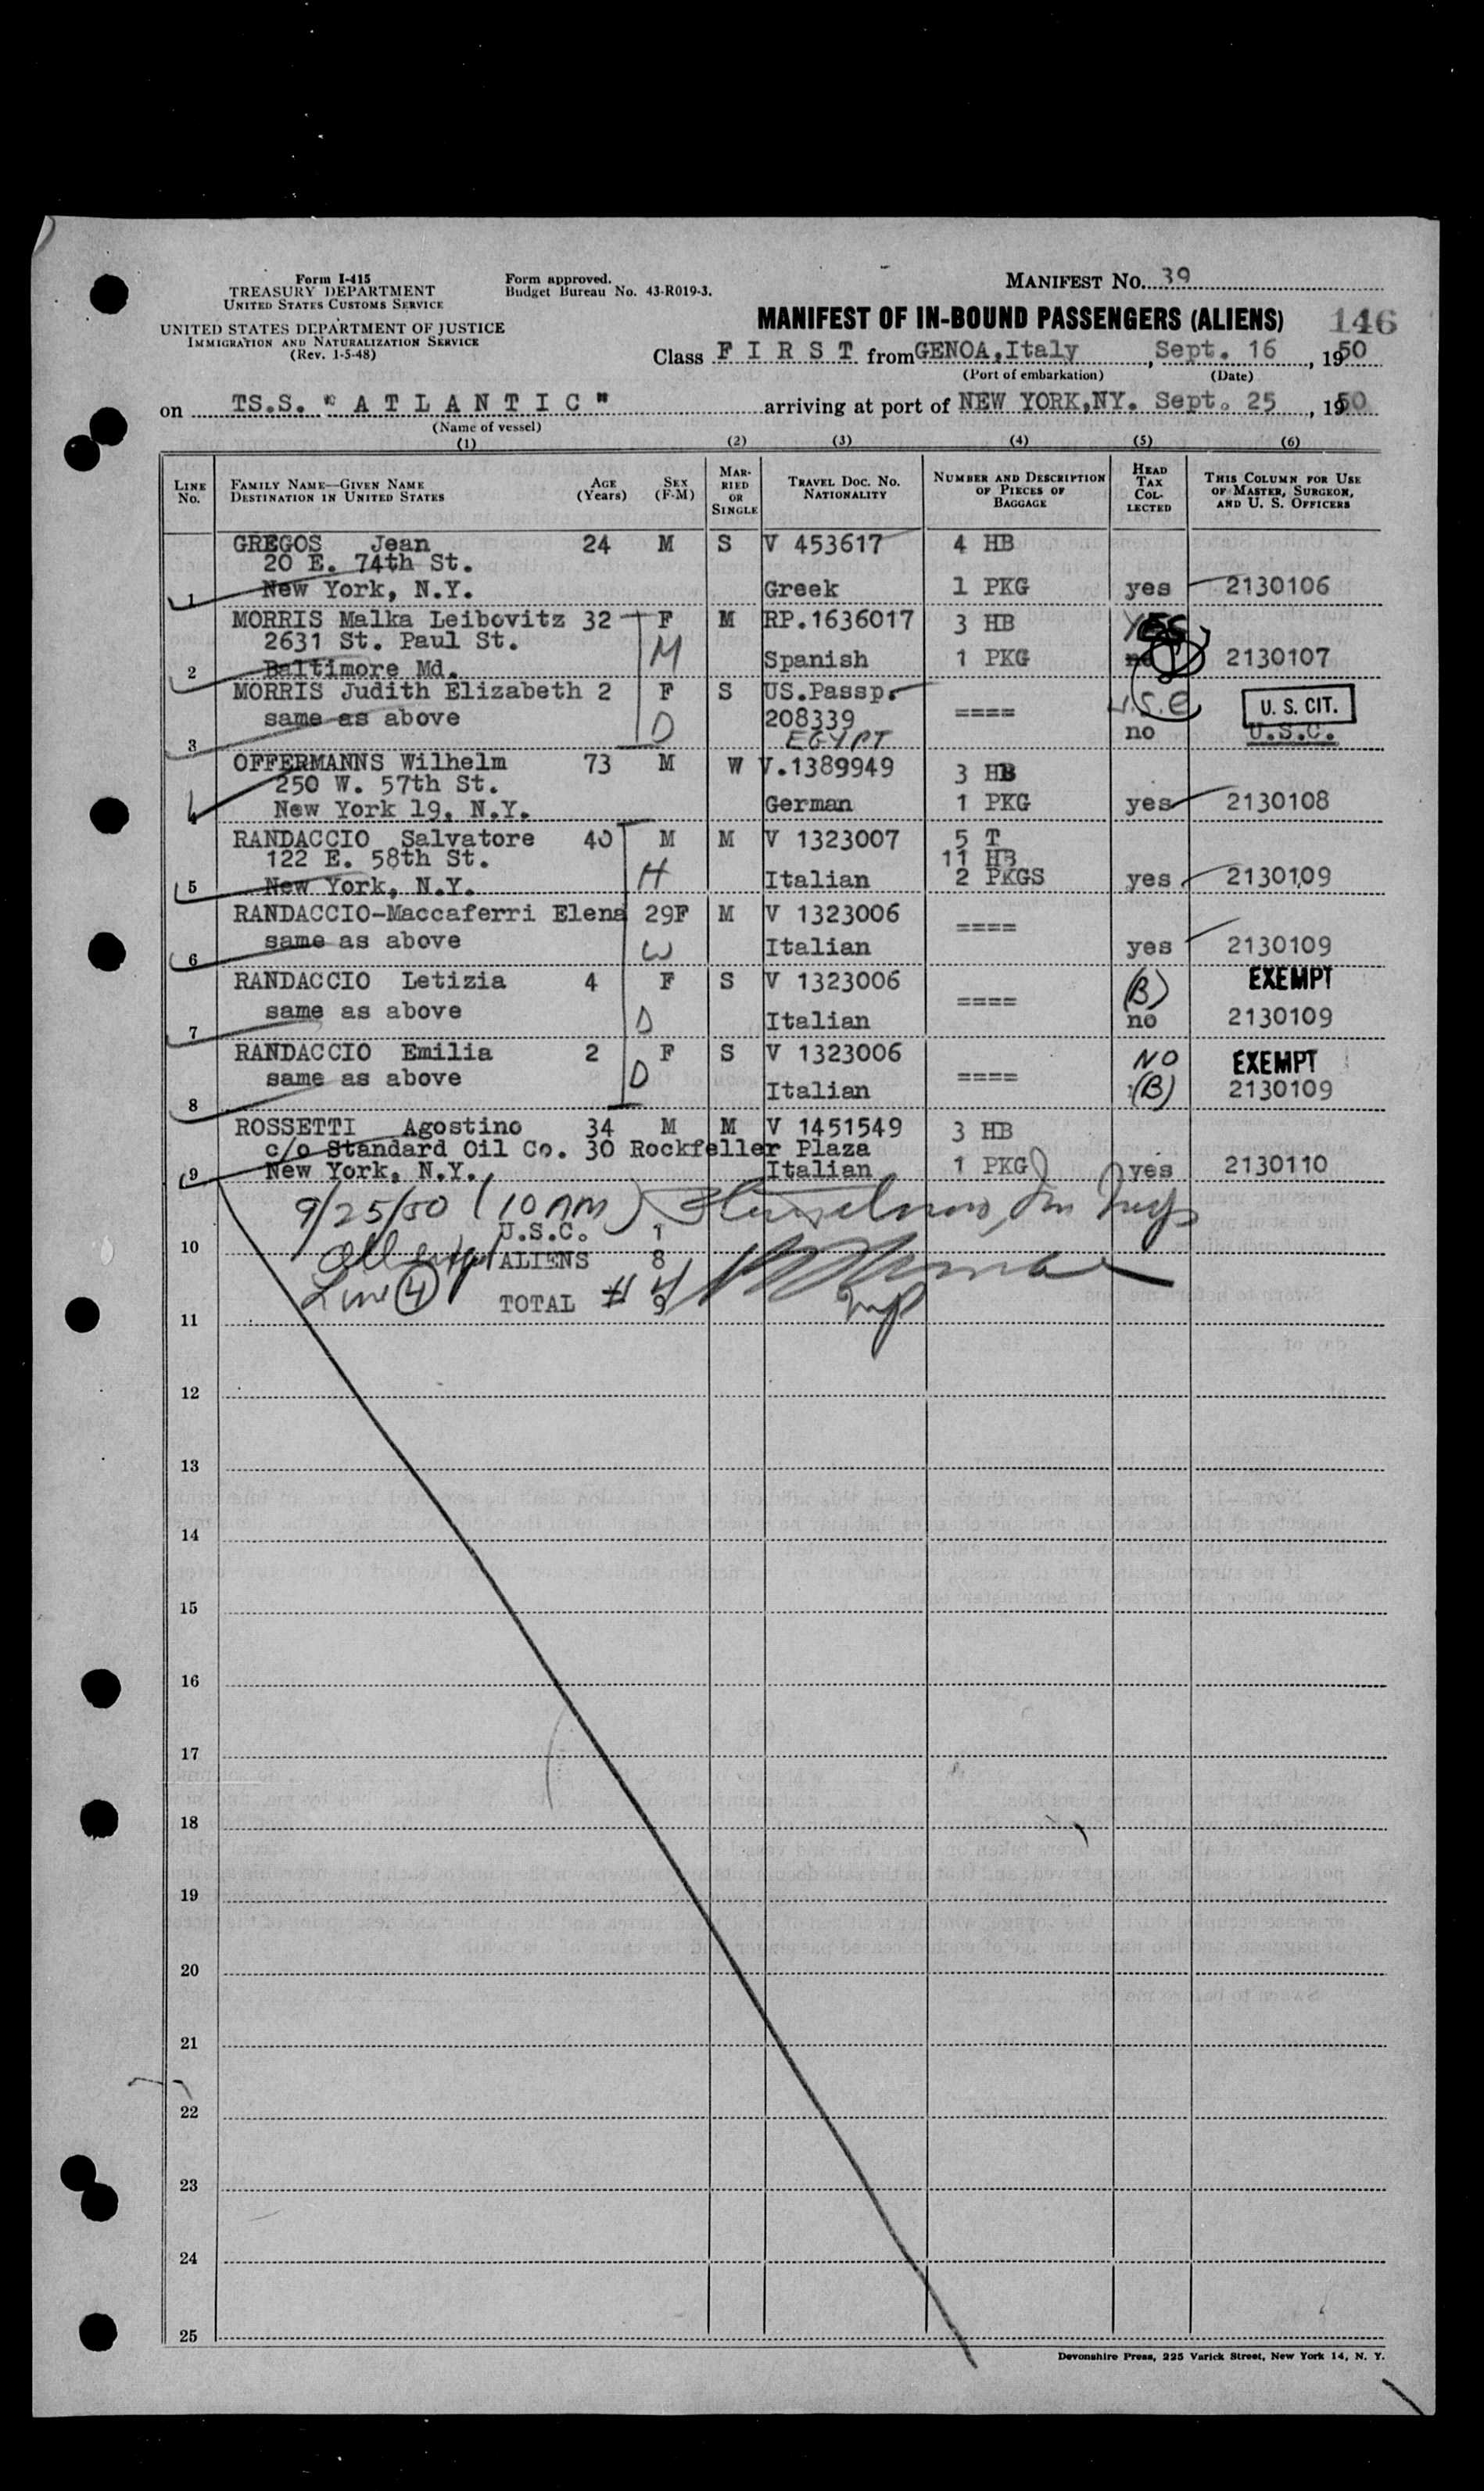 Form I-415
TREASURY DEPARTMENT
UNITED STATES CUSTOMS SERVICE
UNITED STATES DEPARTMENT OF JUSTICE
IMMIGRATION AND NATURALIZATION SERVICE
(Rev. 1-5-48)
Form approved.
Budget Bureau No. 43-R019-3.
MANIFEST NO. 39
MANIFEST OF IN-BOUND PASSENGERS (ALIENS) 146
Class F I R S T from GENOA, Italy, Sept. 16, 1950
(Port of embarkation) (Date)
on TS.S. "A T L A N T I C" arriving at port of NEW YORK, NY. Sept. 25, 1950
(Name of vessel)
(1) (2) (3) (4) (5) (6)
LINE No. FAMILY NAME—GIVEN NAME DESTINATION IN UNITED STATES AGE (Years) SEX (F-M) MARRIED OR SINGLE TRAVEL DOC. NO. NATIONALITY NUMBER AND DESCRIPTION OF PIECES OF BAGGAGE HEAD TAX COLLECTED THIS COLUMN FOR USE OF MASTER, SURGEON, AND U. S. OFFICERS
GREGOS Jean 24 M S V 453617 4 HB
20 E. 74th St.
1 New York, N.Y. Greek 1 PKG yes 2130106
MORRIS Malka Leibovitz 32 F M RP.1636017 3 HB YES
2631 St. Paul St. M
2 Baltimore Md. Spanish 1 PKG no 1 2130107
MORRIS Judith Elizabeth 2 F S US.Passp. U.S.C U. S. CIT.
same as above D 208339 ====
3 EGYPT no U.S.C.
OFFERMANNS Wilhelm 73 M W V.1389949 3 HB
250 W. 57th St.
4 New York 19, N.Y. German 1 PKG yes 2130108
RANDACCIO Salvatore 40 M M V 1323007 5 T
122 E. 58th St. 11 HB
5 New York, N.Y. H Italian 2 PKGS yes 2130109
RANDACCIO-Maccaferri Elena 29F M V 1323006 ====
6 same as above W Italian yes 2130109
RANDACCIO Letizia 4 F S V 1323006 (B) EXEMPT
same as above D ====
7 Italian no 2130109
RANDACCIO Emilia 2 F S V 1323006 NO EXEMPT
same as above D ====
8 Italian (B) 2130109
ROSSETTI Agostino 34 M M V 1451549 3 HB
c/o Standard Oil Co. 30 Rockfeller Plaza
9 New York, N.Y. Italian 1 PKG yes 2130110
9/25/50 (10 AM)
U.S.C. 1
10 All ALIENS 8
Line 4 TOTAL 9
11
12
13
14
15
16
17
18
19
20
21
22
23
24
25
Devonshire Press, 225 Varick Street, New York 14, N. Y.